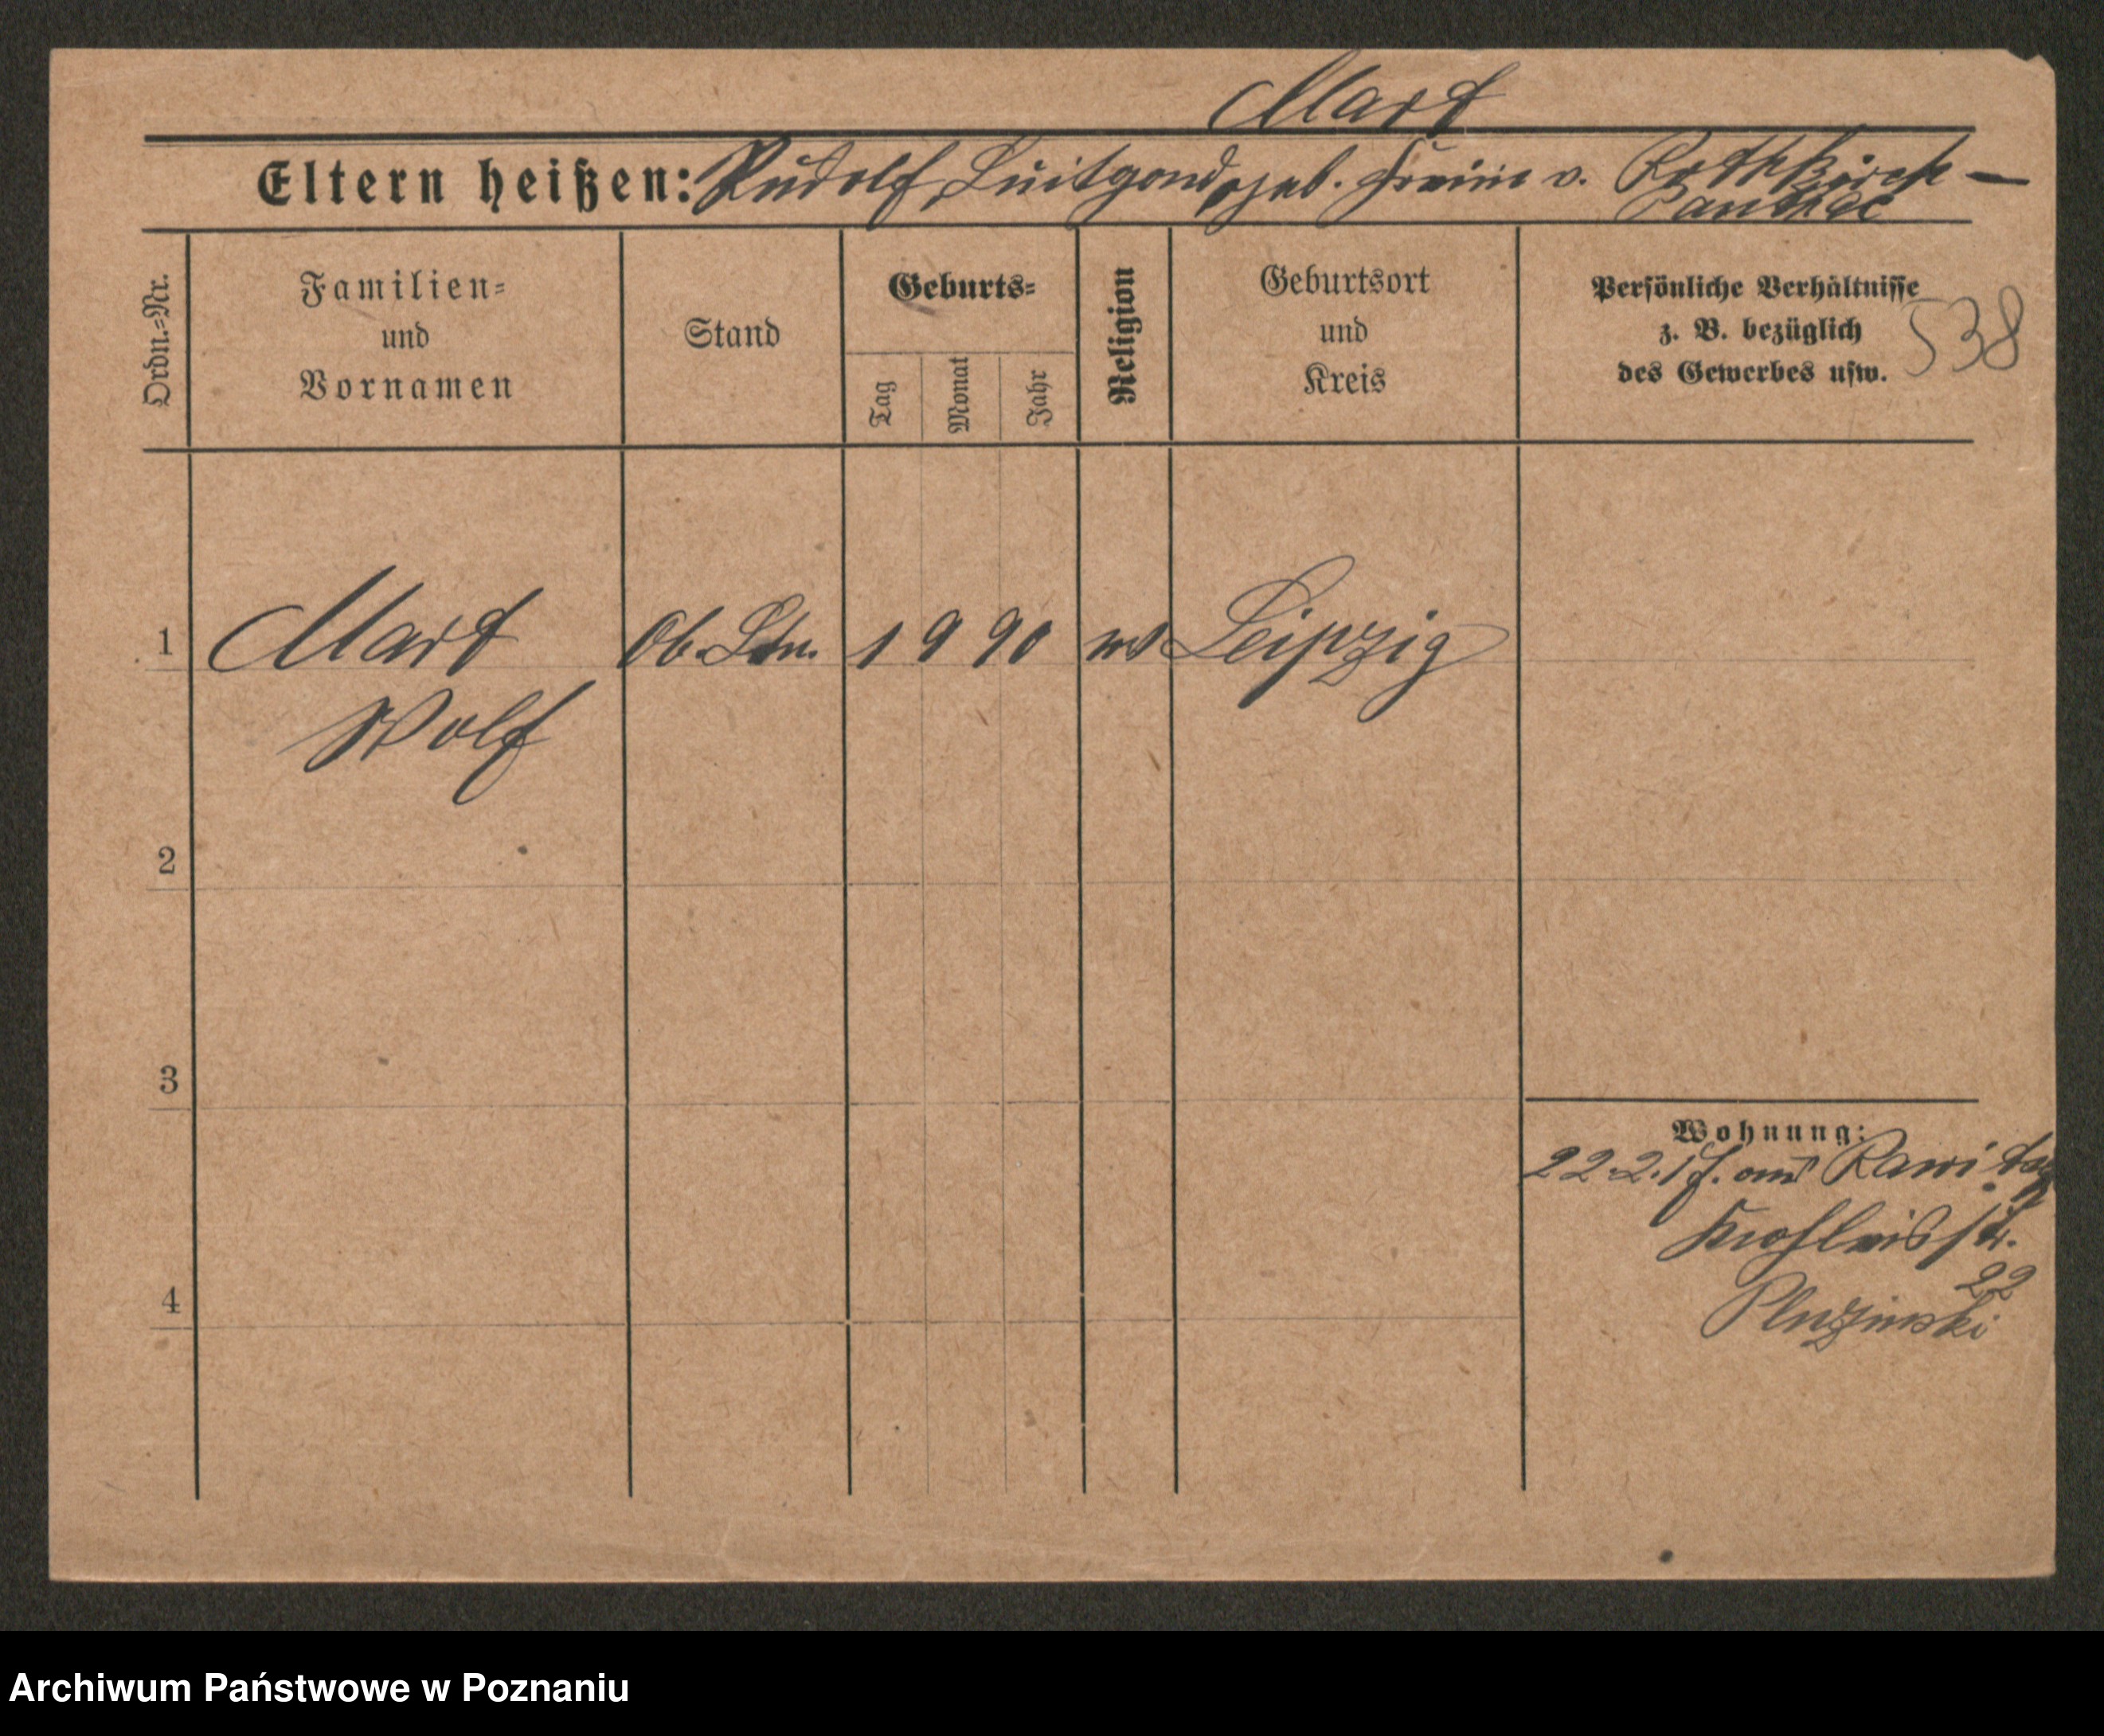 Marx
Eltern heißen: Rudolf, Luitgard geb. Freiin v. Rothkirch-
Panthec
Ordn.=Nr.
Familien=
und
Vornamen
Stand
Geburts=
Tag
Monat
Jahr
Religion
Geburtsort
und
Kreis
Persönliche Verhältnisse
z. B. bezüglich
des Gewerbes usw.
538
1 Marx Ob. Ltn. 1 9 90 Leipzig
Wolf
2
3
4
Wohnung:
22.2.1 f. aus
str.
22
Pluzinski
Archiwum Państwowe w Poznaniu